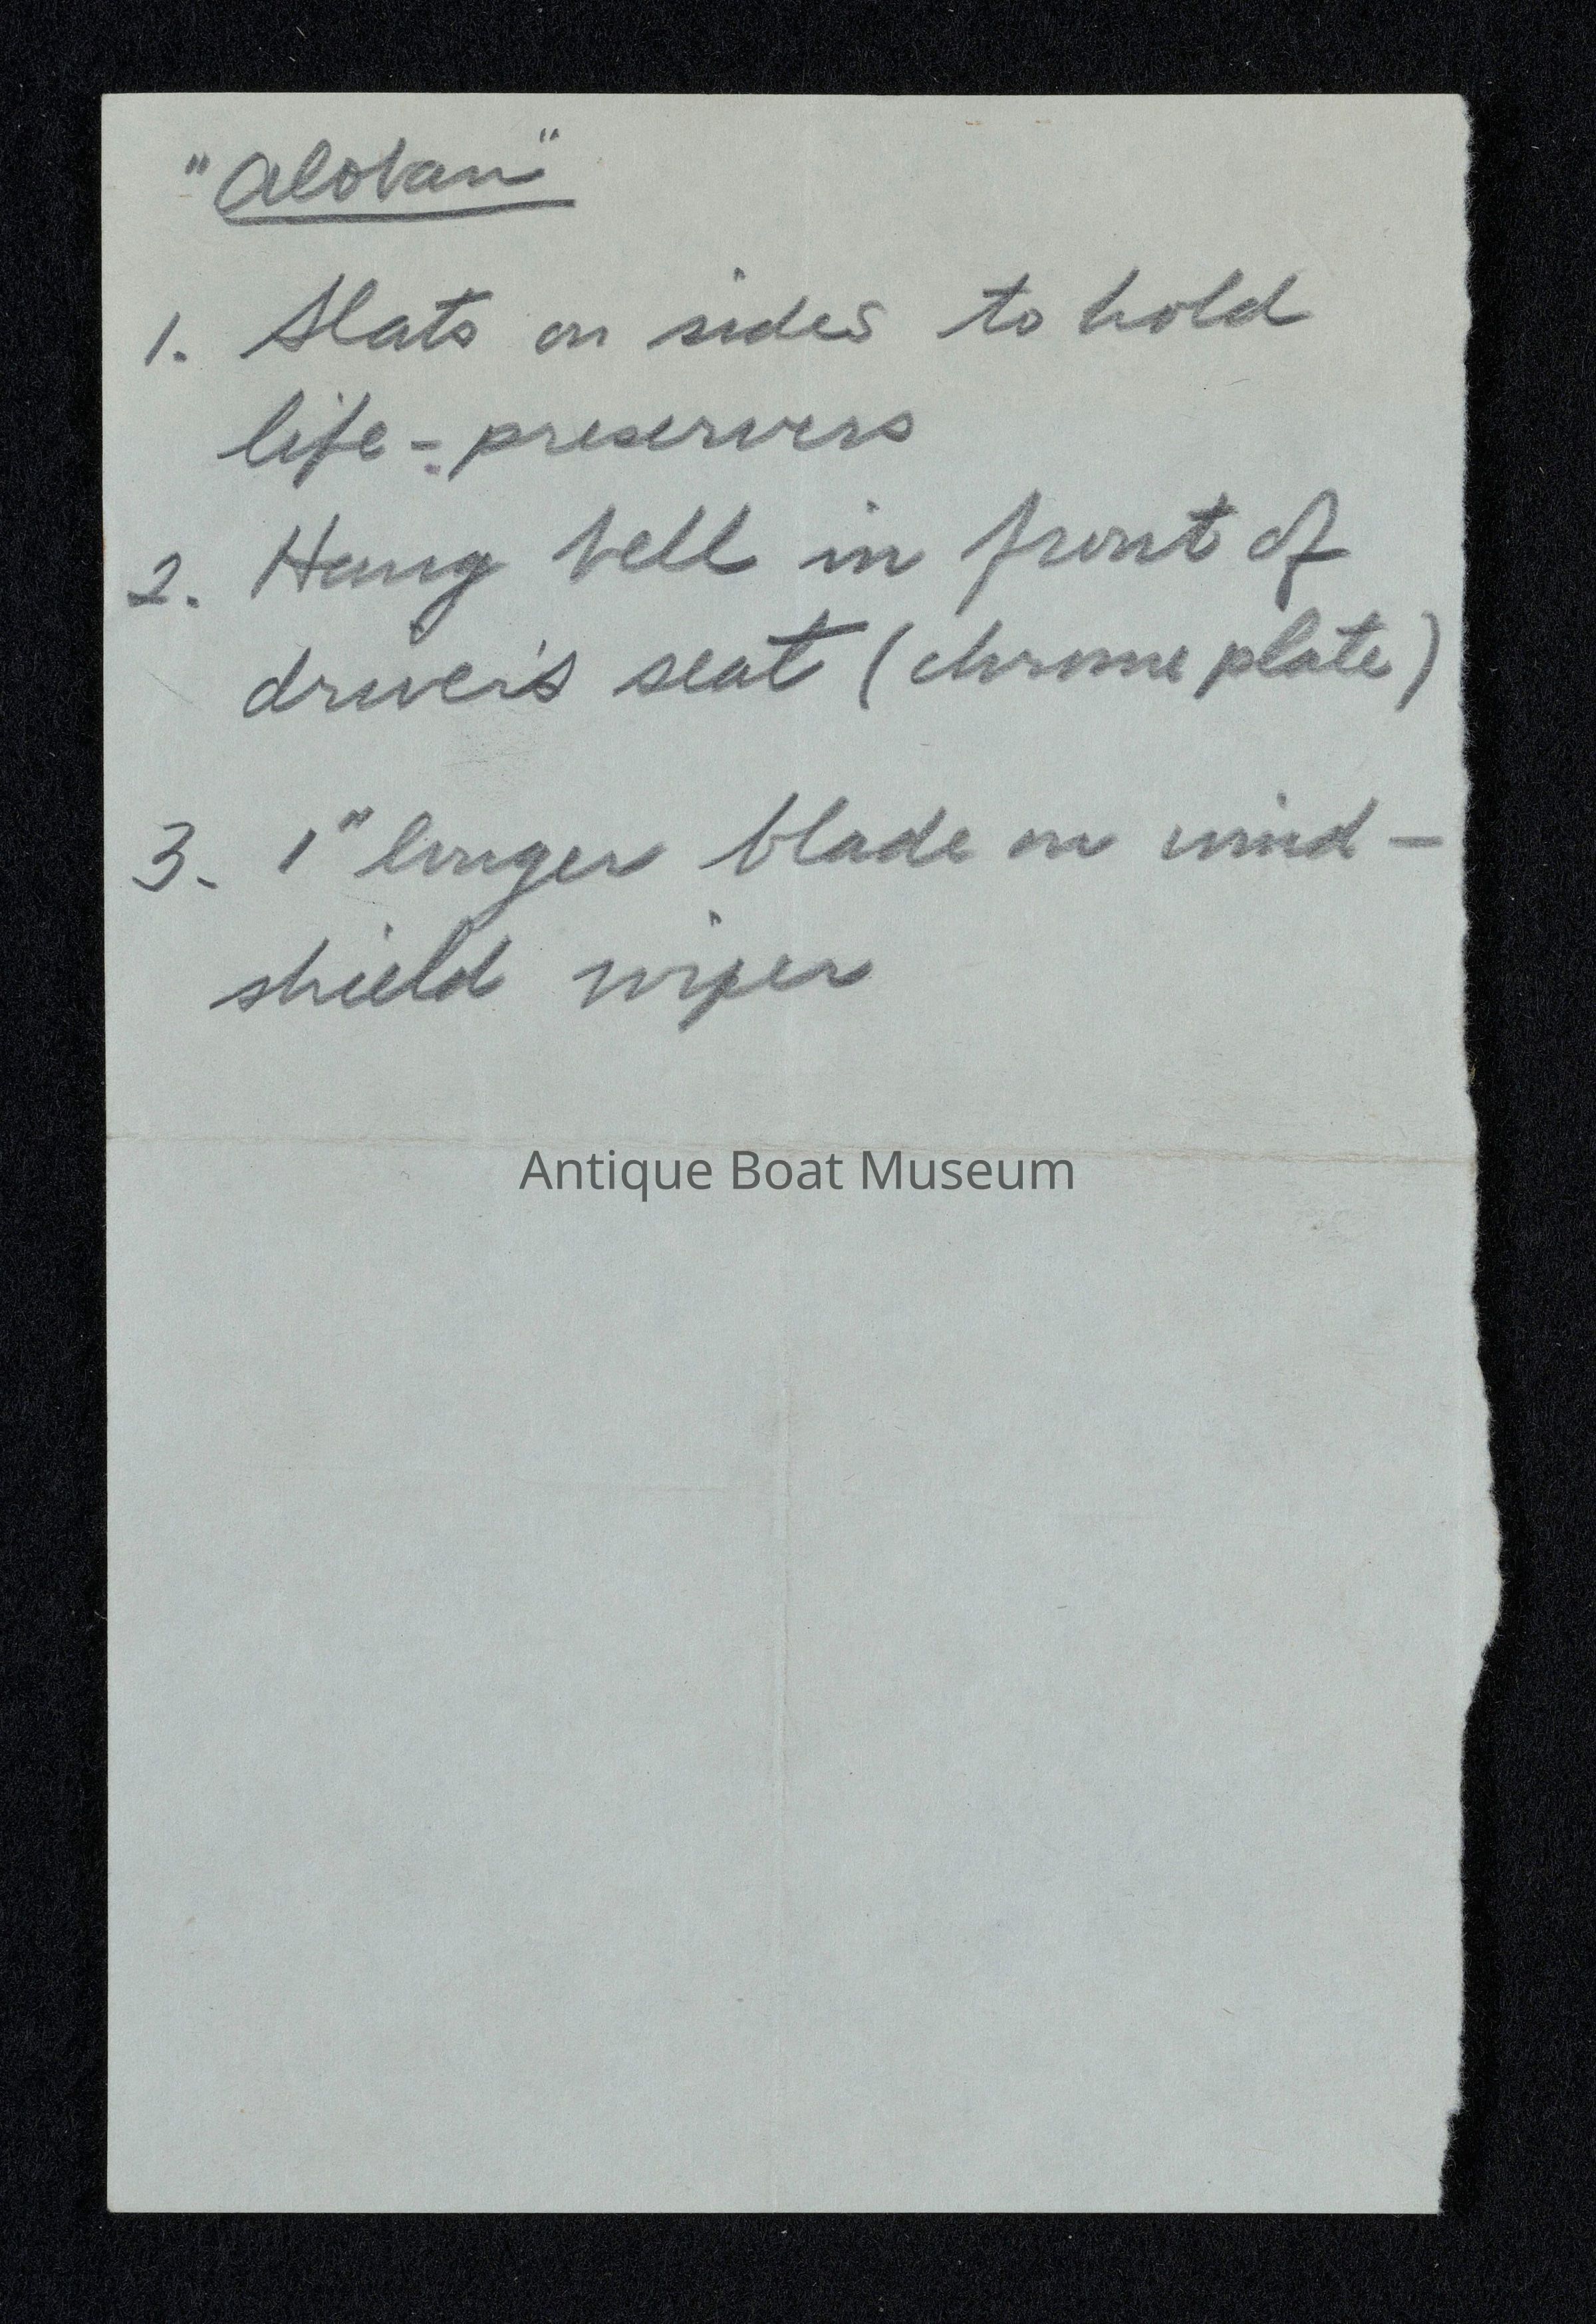 "Aloban"
1. Slats on sides to hold
life-preservers
2. Hang bell in front of
driver's seat (chrome plate)
3. 1" longer blade on wind-
shield wiper
Antique Boat Museum